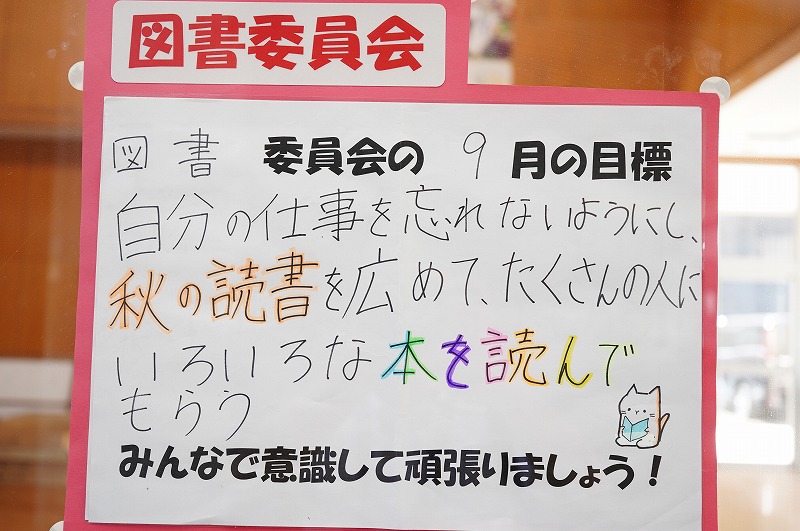 図書委員会
図書 委員会の 9 月の目標
自分の仕事を忘れないようにし、
秋の読書を広めて、たくさんの人に
いろいろな本を読んで
もらう
みんなで意識して頑張りましょう！